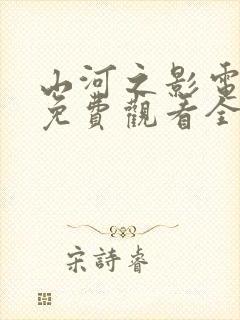 山河之影電
免費觀看全
宋詩睿